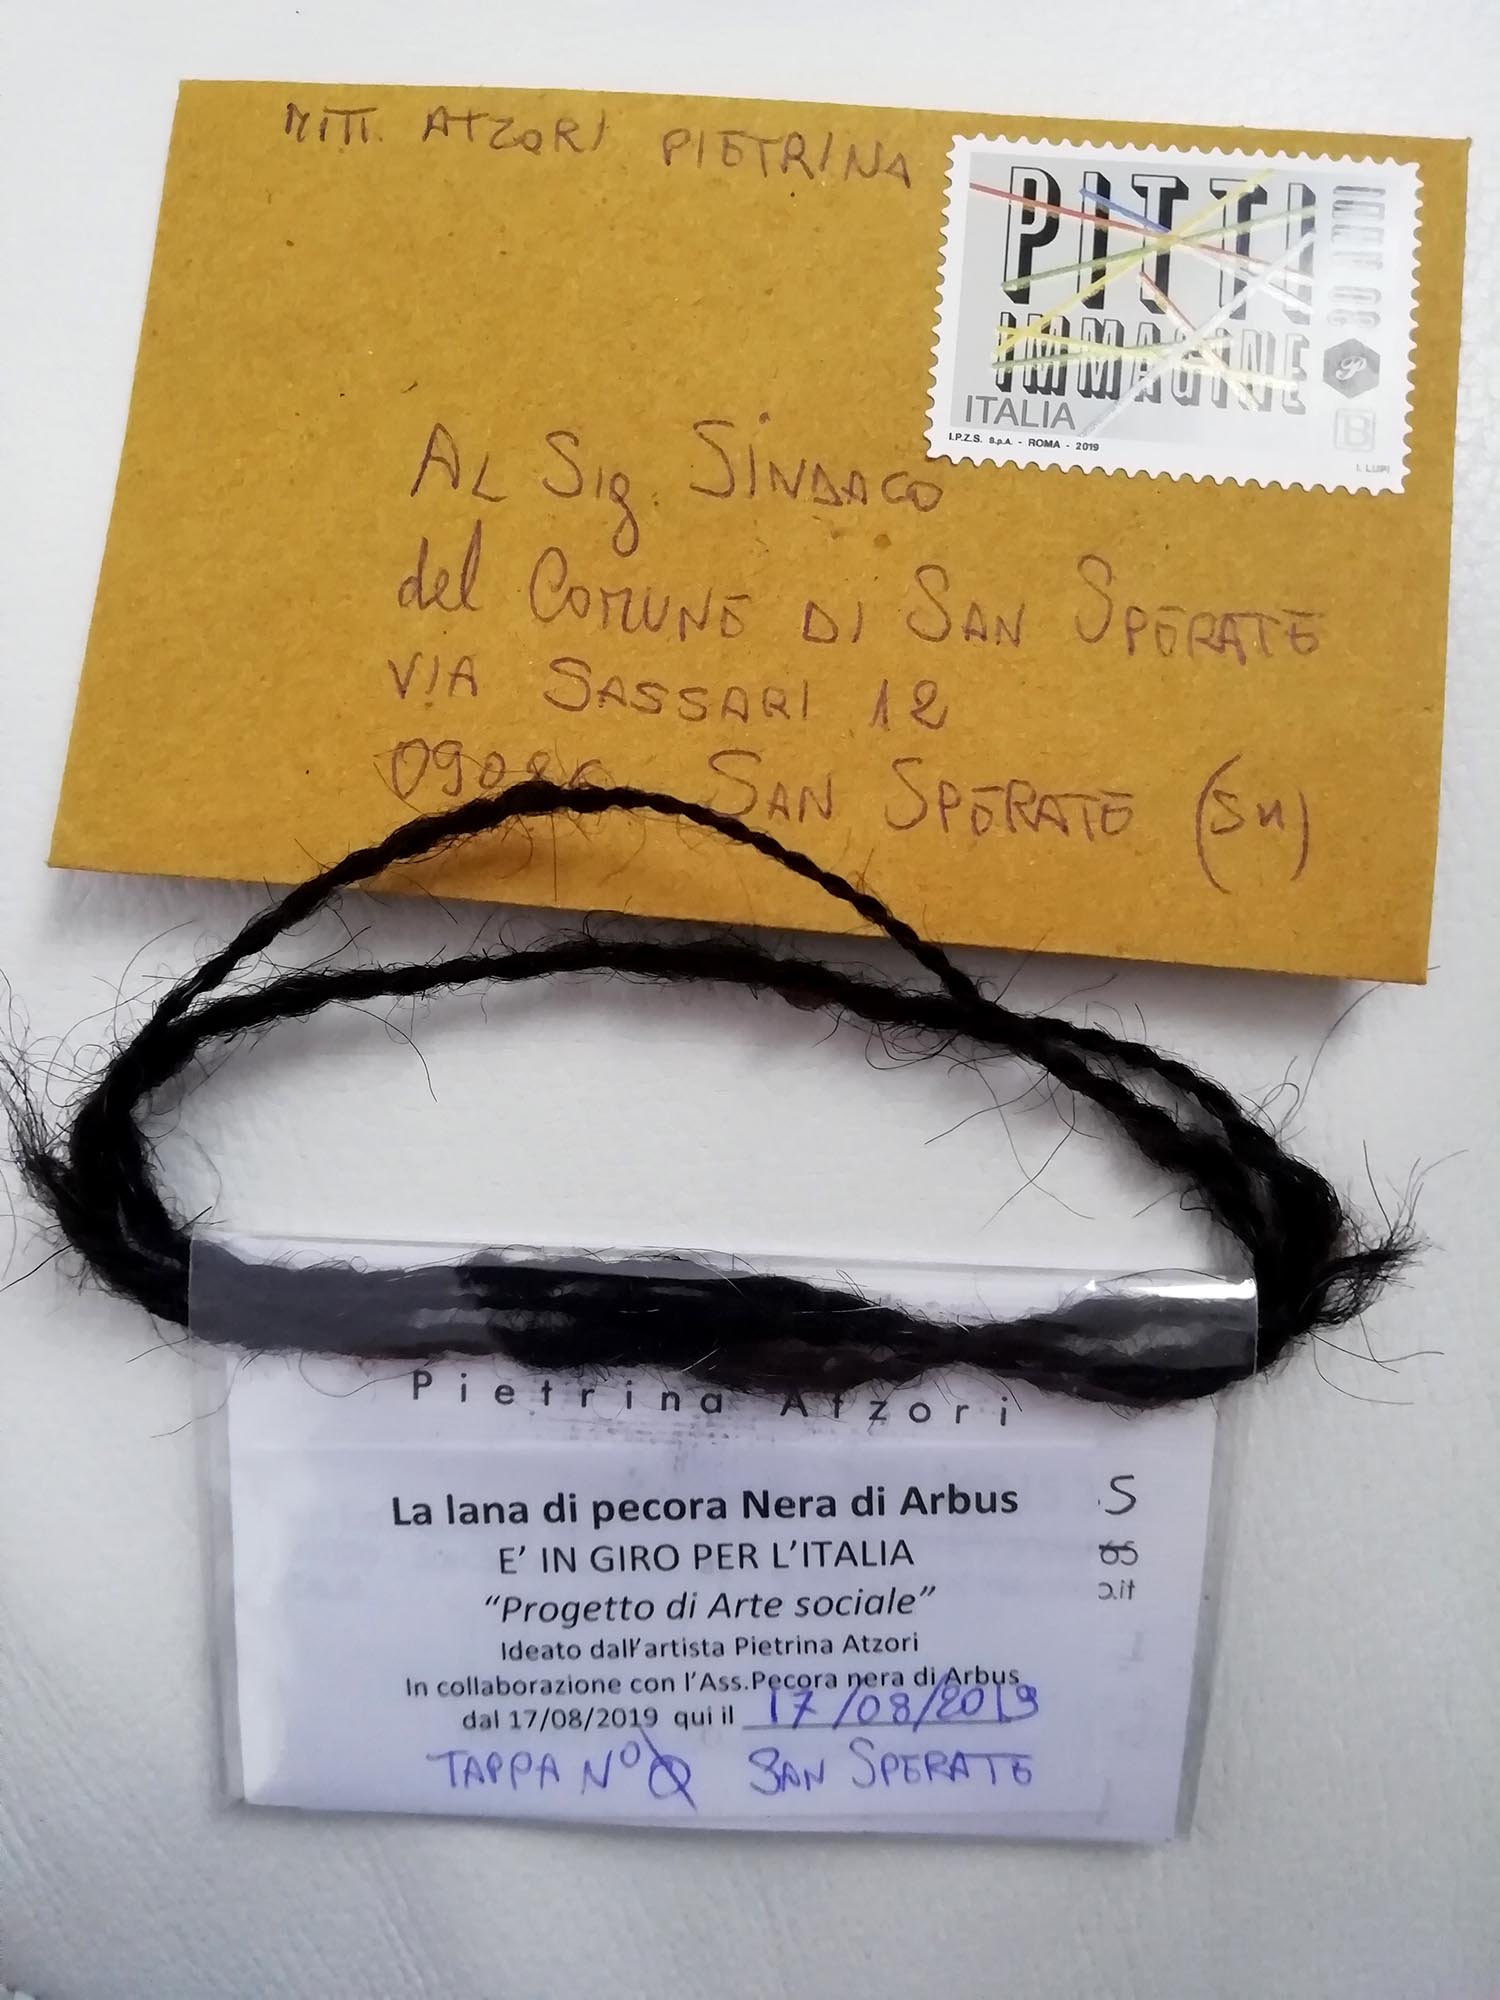 MITT. ATZORI PIETRINA
PITTI
IMMAGINE
ITALIA
I.P.Z.S. S.p.A. - ROMA - 2019
B
I. LUPI
AL Sig. SINDACO
del COMUNE DI SAN SPERATE
VIA SASSARI 12
09026 SAN SPERATE (SU)
Pietrina Atzori
La lana di pecora Nera di Arbus
E' IN GIRO PER L'ITALIA
"Progetto di Arte sociale"
Ideato dall'artista Pietrina Atzori
In collaborazione con l'Ass.Pecora nera di Arbus
dal 17/08/2019 qui il 17/08/2019
TAPPA N° 0 SAN SPERATE
S
65
o.it